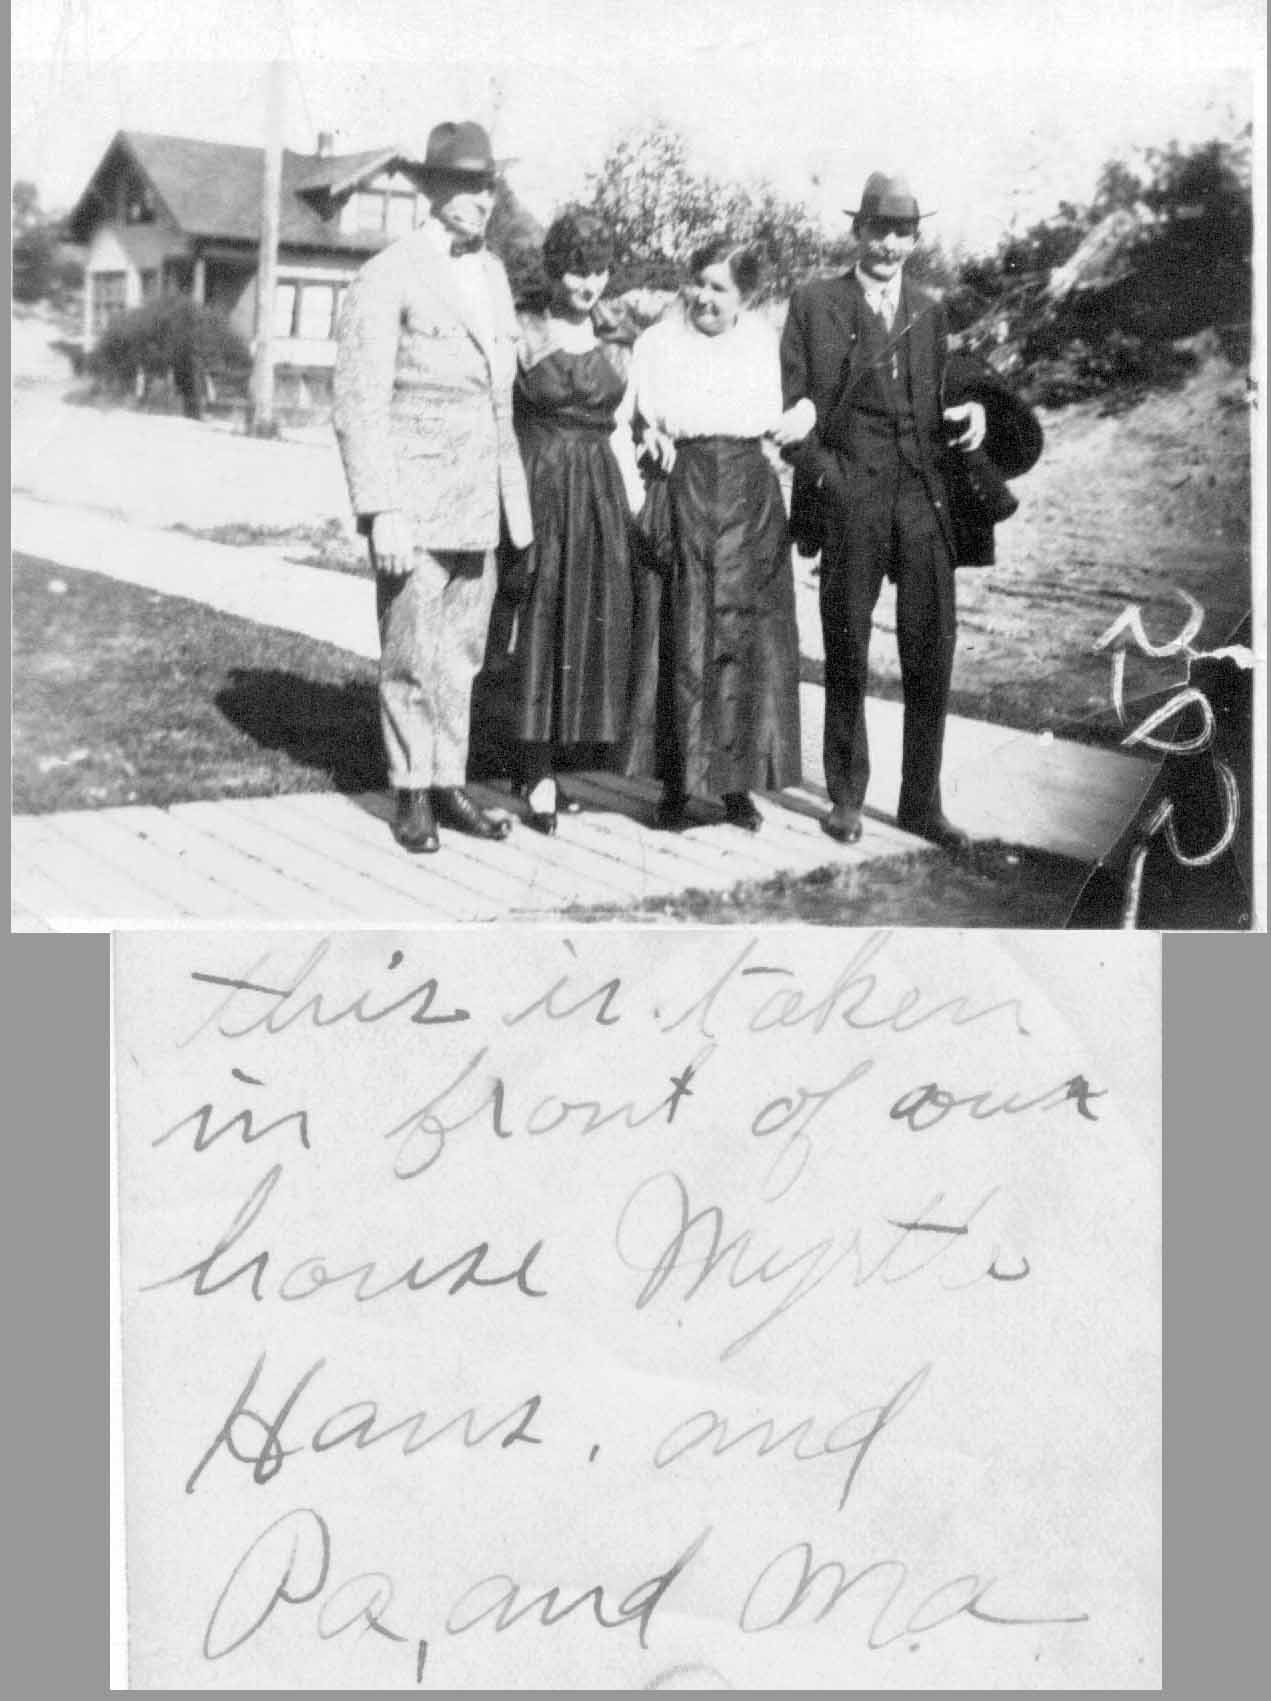 this is taken
in front of our
house Myrtle
Hans, and
Pa, and Ma